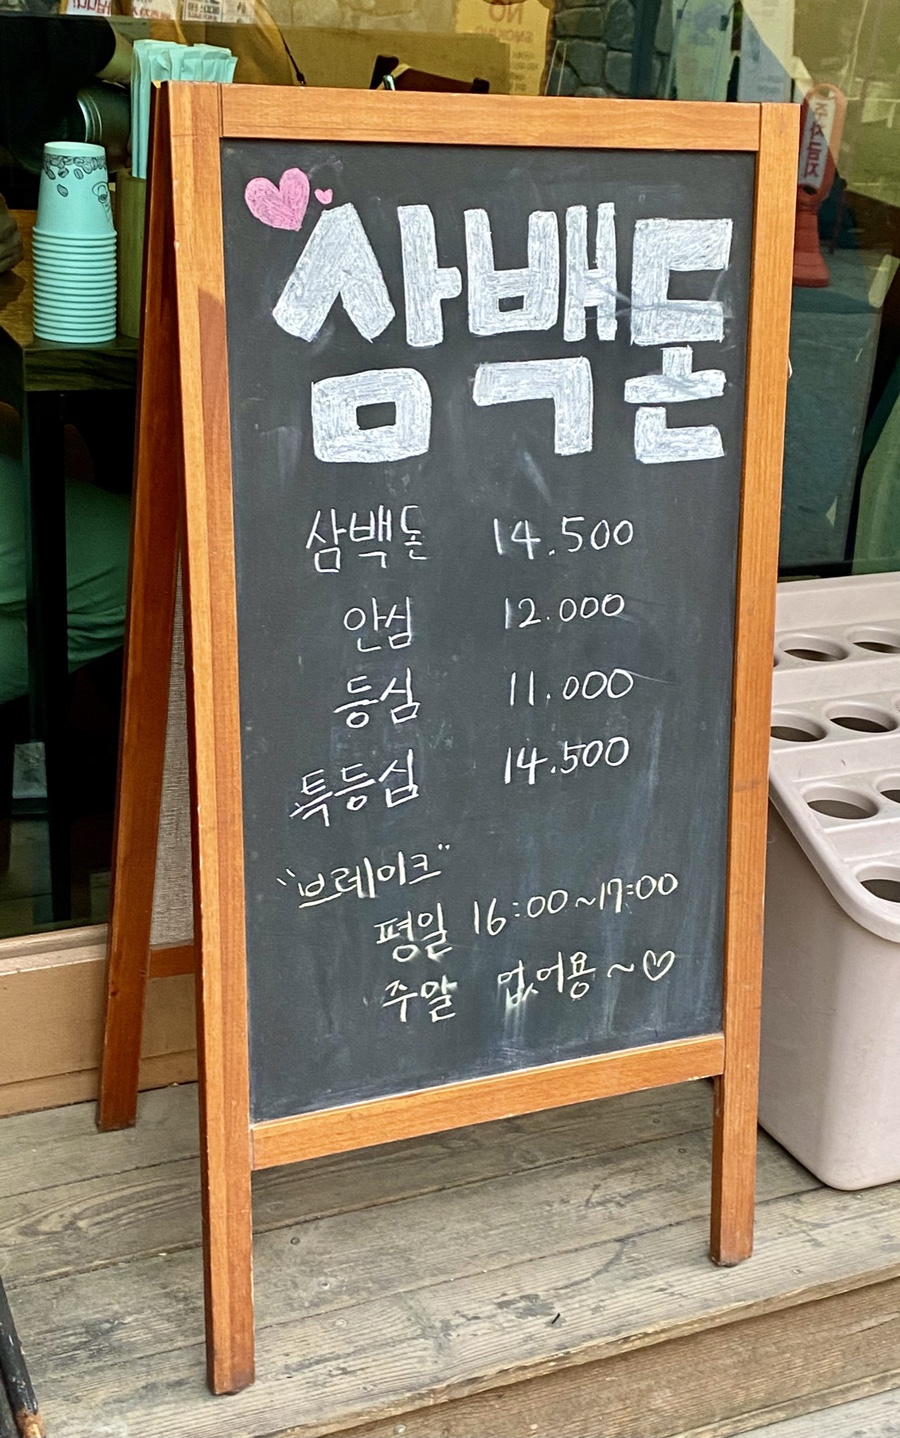 NO
삼백돈
삼백돈 14.500
안심 12.000
등심 11.000
특등심 14.500
"브레이크"
평일 16:00~17:00
주말 없어용~♡